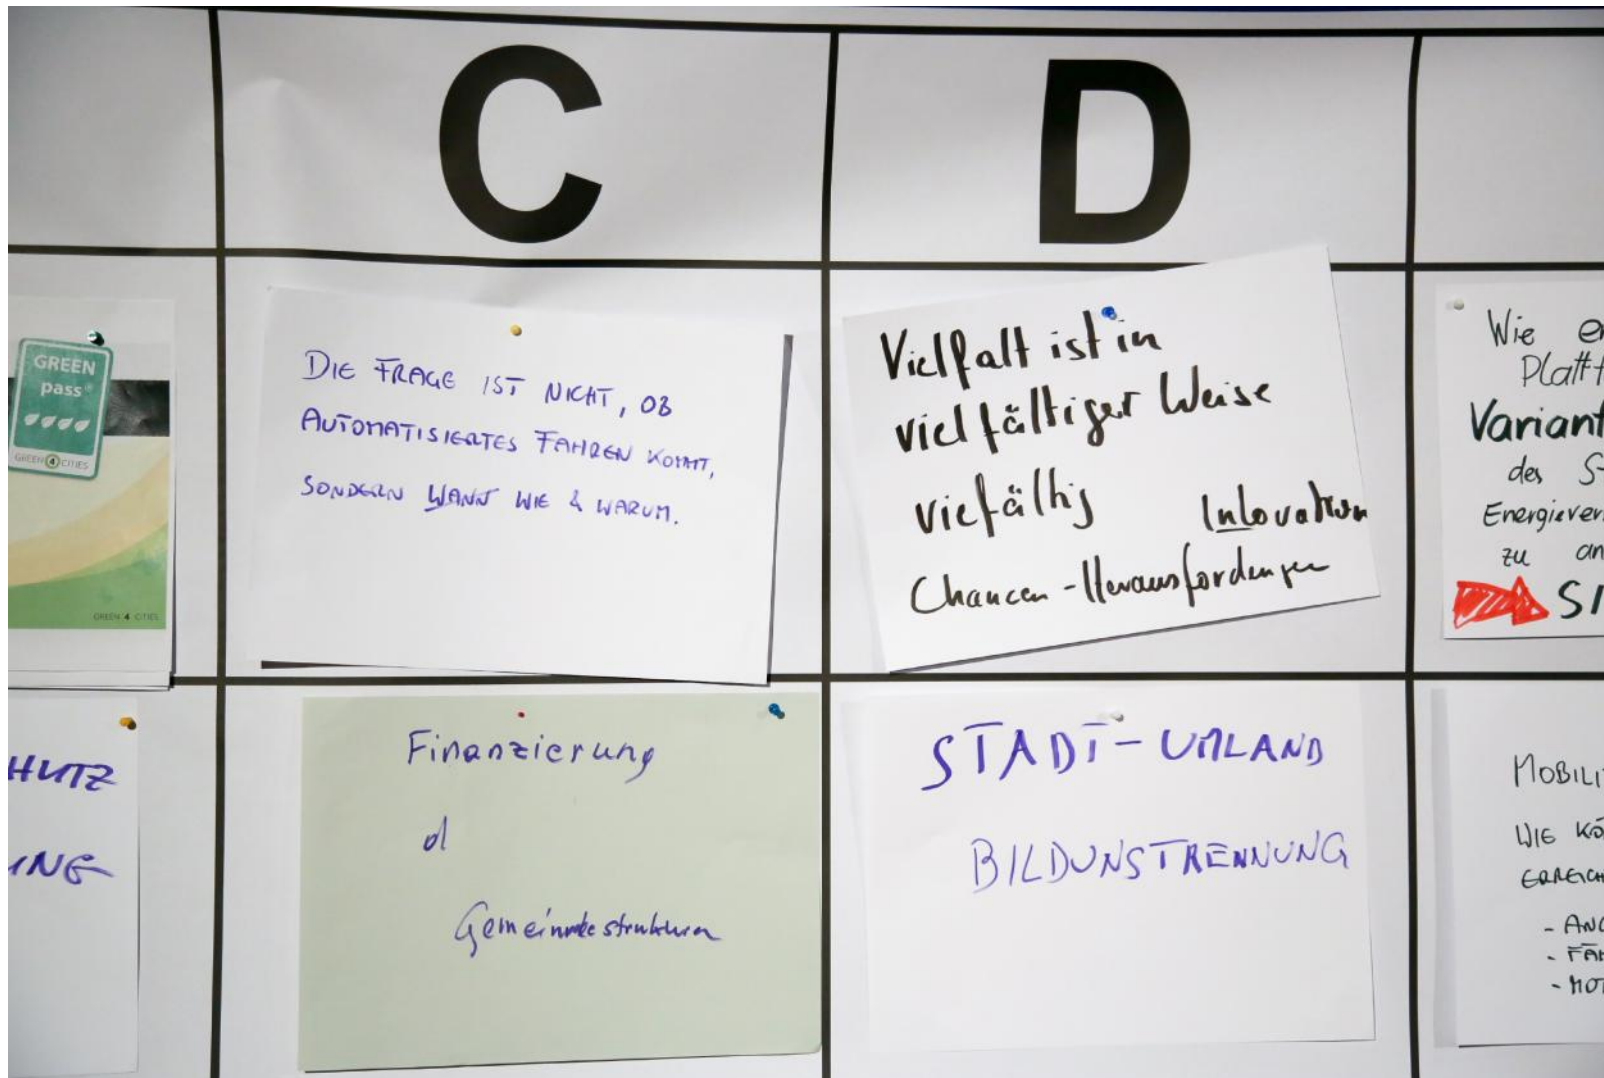 C
D
GREEN
pass®
GREEN 4 CITIES
GREEN 4 CITIES
DIE FRAGE IST NICHT, OB
AUTOMATISIERTES FAHREN KOMMT,
SONDERN WANN WIE & WARUM.
Vielfalt ist in
vielfältiger Weise
viefältig Inlovation
Chancen - Herausfordungen
Wie er
Plattf
Variant
des S
Energiever
zu an
SI
HUTZ
UNG
Finanzierung
d
Gemeindestrukturen
STADT - UMLAND
BILDUNSTRENNUNG
MOBILI
WIE KÖ
ERREICH
- ANG
- FAH
- MOT